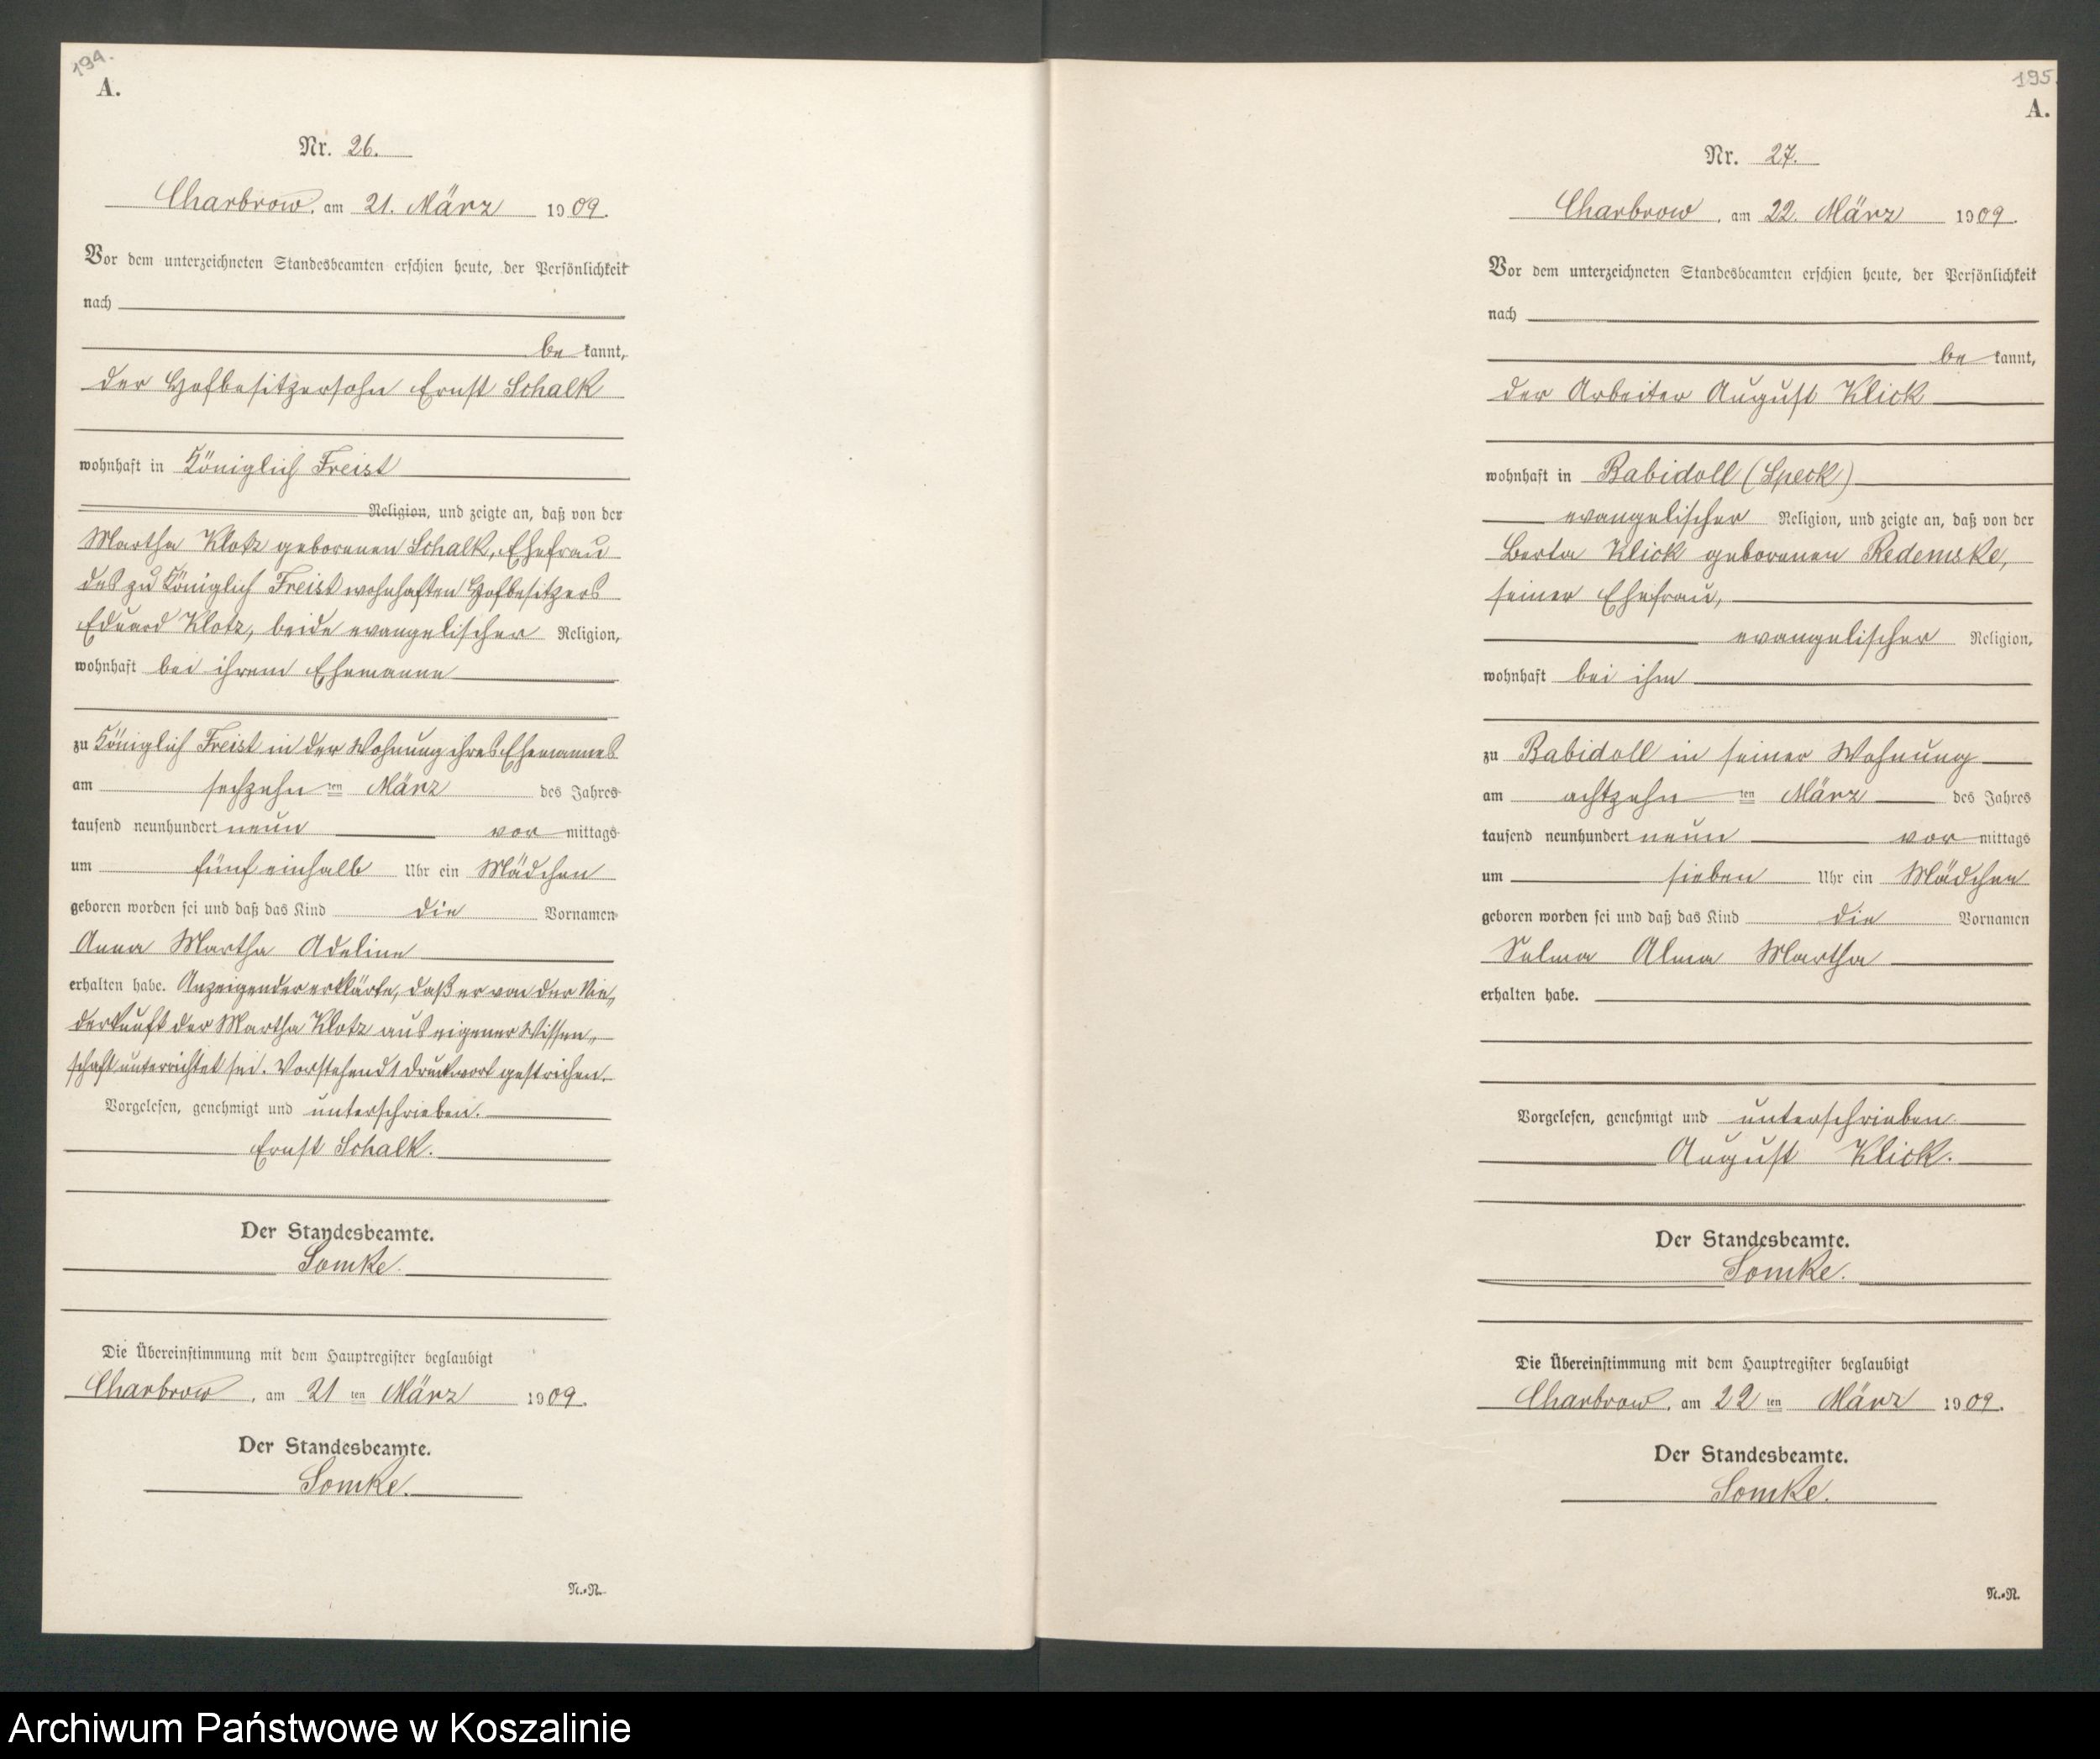 194.
A.
Nr. 26.
Charbrow, am 21. März 1909.
Vor dem unterzeichneten Standesbeamten erschien heute, der Persönlichkeit
nach
be kannt,
der Hofbesitzersohn Ernst Schalk
wohnhaft in Königlich Freist
Religion, und zeigte an, daß von der
Martha Klotz geborenen Schalk, Ehefrau
des zu Königlich Freist wohnhaften Hofbesitzers
Eduard Klotz, beide evangelischer Religion,
wohnhaft bei ihrem Ehemanne
zu Königlich Freist in der Wohnung ihres Ehemannes
am sechzehn ten März des Jahres
tausend neunhundert neun vor mittags
um fünf einhalb Uhr ein Mädchen
geboren worden sei und daß das Kind die Vornamen
Anna Martha Adeline
erhalten habe. Anzeigender erklärte, daß er von der Nie„
derkunft der Martha Klotz aus eigener Wissen„
schaft unterrichtet sei. Vorstehend 1 Druckwort gestrichen.
Vorgelesen, genehmigt und unterschrieben.
Ernst Schalk.
Der Standesbeamte.
Somke.
Die Übereinstimmung mit dem Hauptregister beglaubigt
Charbrow, am 21 ten März 1909.
Der Standesbeamte.
Somke.
N.-N.
195.
A.
Nr. 27.
Charbrow, am 22. März 1909.
Vor dem unterzeichneten Standesbeamten erschien heute, der Persönlichkeit
nach
be kannt,
der Arbeiter August Klick
wohnhaft in Babidoll (Speck)
evangelischer Religion, und zeigte an, daß von der
Berta Klick geborenen Redemske,
seiner Ehefrau,
evangelischer Religion,
wohnhaft bei ihm
zu Babidoll in seiner Wohnung
am achtzehn ten März des Jahres
tausend neunhundert neun vor mittags
um sieben Uhr ein Mädchen
geboren worden sei und daß das Kind die Vornamen
Selma Alma Martha
erhalten habe.
Vorgelesen, genehmigt und unterschrieben.
August Klick.
Der Standesbeamte.
Somke.
Die Übereinstimmung mit dem Hauptregister beglaubigt
Charbrow, am 22 ten März 1909.
Der Standesbeamte.
Somke.
N.-N.
Archiwum Państwowe w Koszalinie